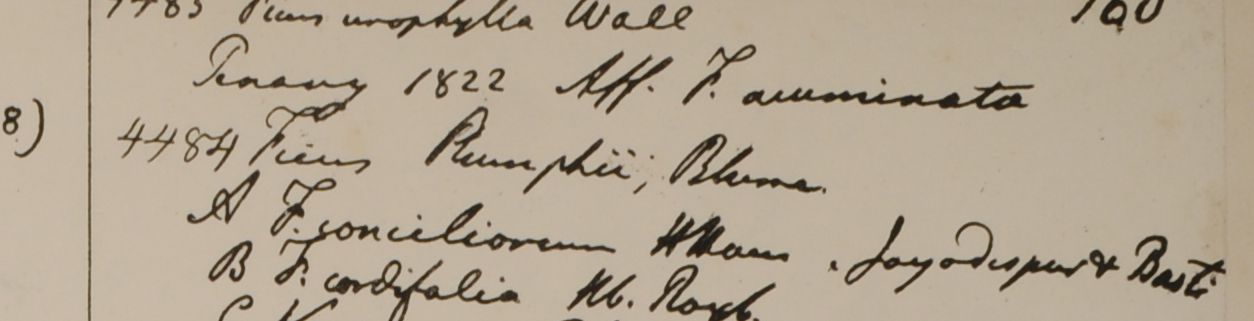 4483 Ficus urophylla Wall 160
Penang 1822 Aff. F. acuminata
8)
4484 Ficus Rumphii, Blume.
A F. conciliorum HHam. & Basti
B F. cordifolia Hb. Roxb.